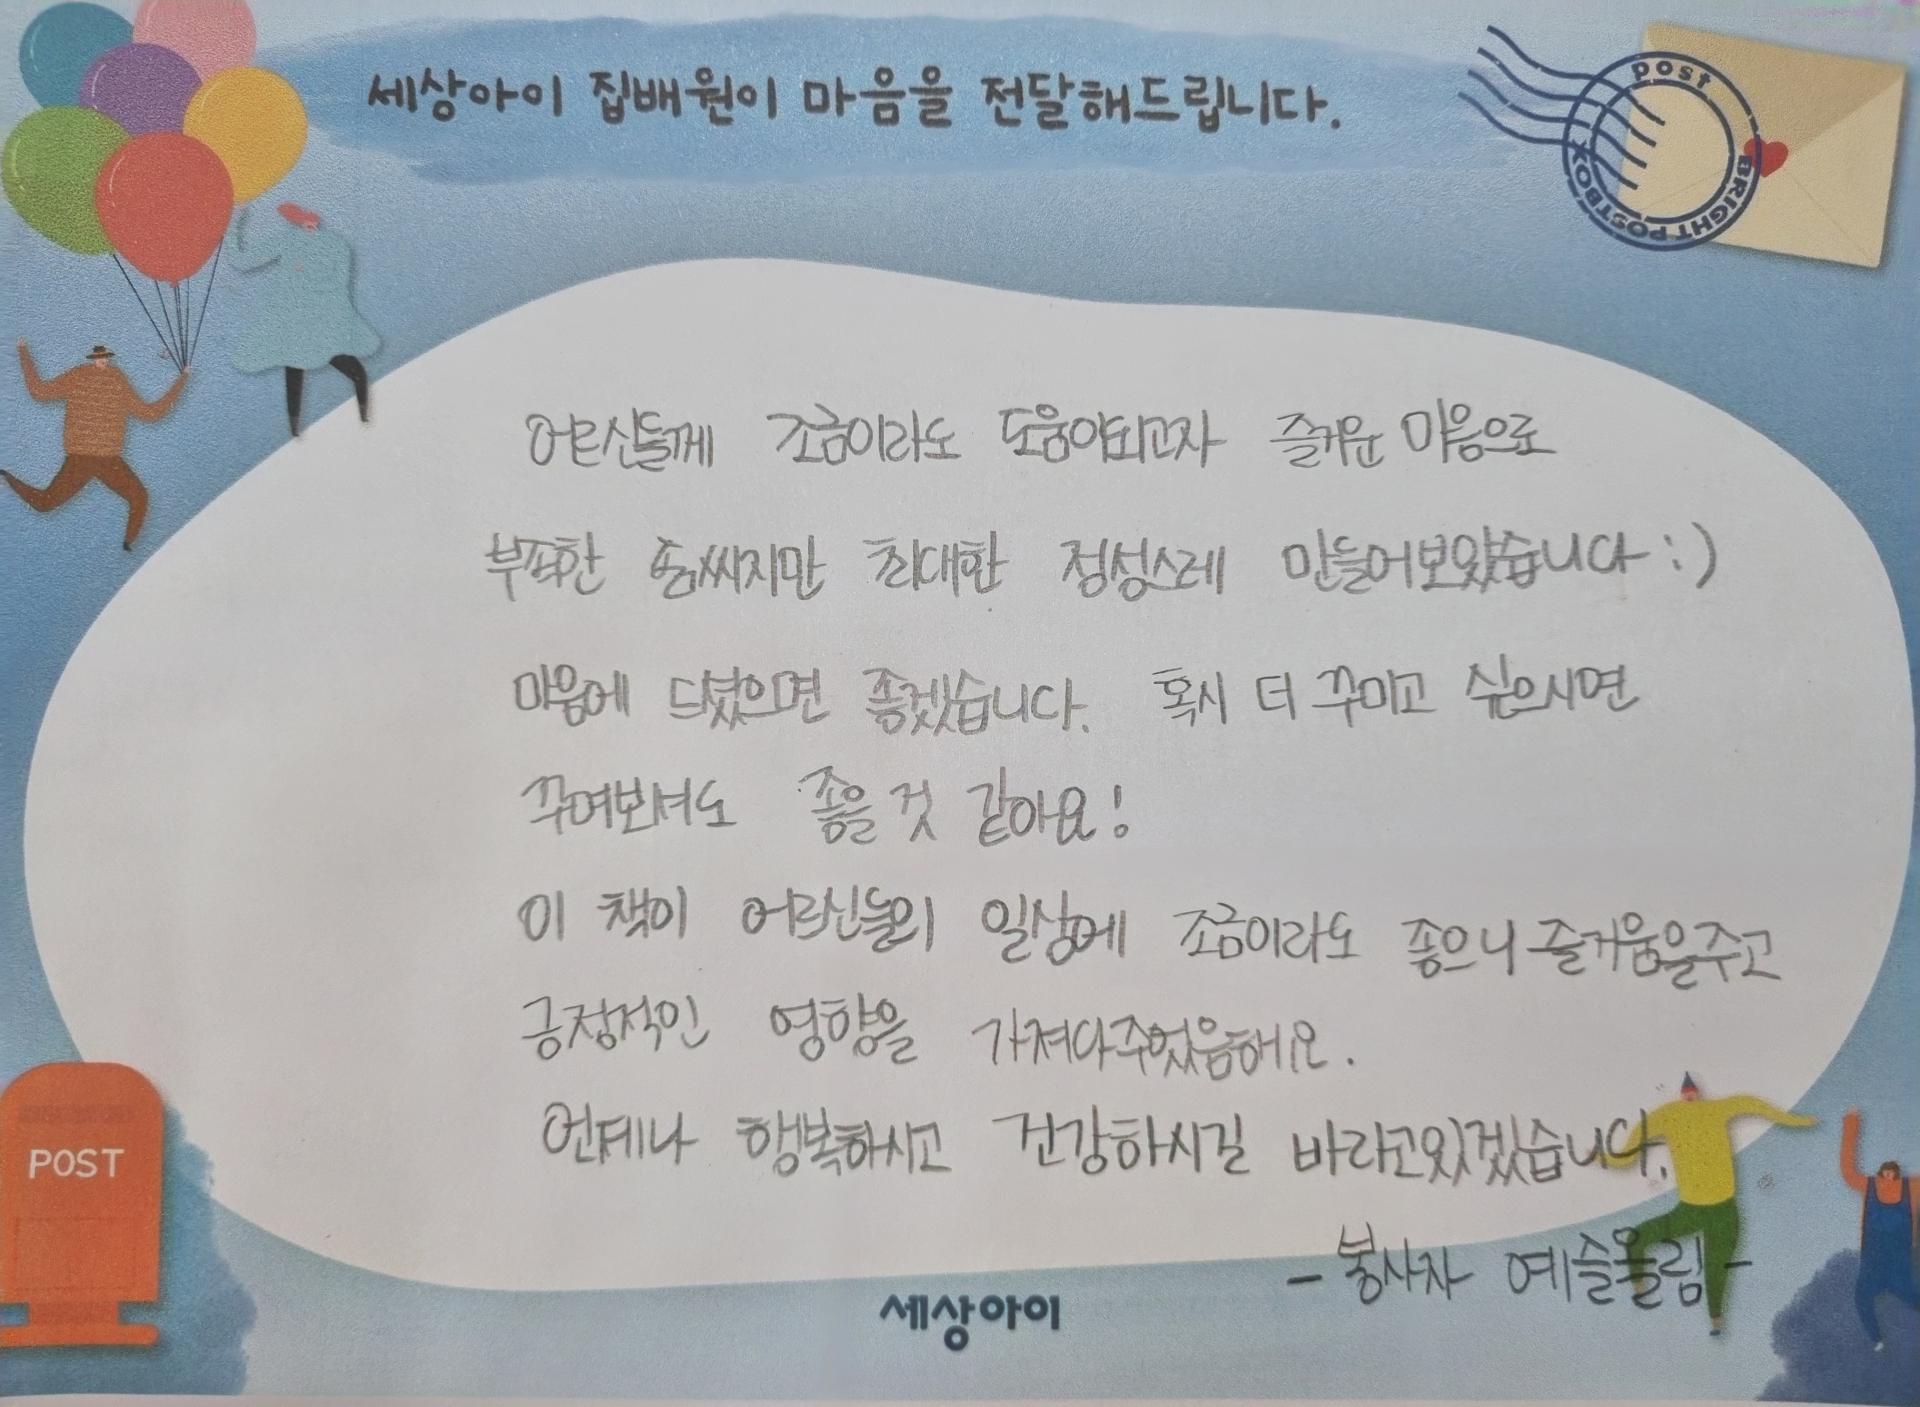 세상아이 집배원이 마음을 전달해드립니다.
post
BRIGHT POSTBOX
어르신들께 조금이라도 도움이되고자 즐거운 마음으로
부족한 솜씨지만 최대한 정성스레 만들어보았습니다 :)
마음에 드셨으면 좋겠습니다. 혹시 더 꾸미고 싶으시면
꾸며보셔도 좋을 것 같아요!
이 책이 어르신들의 일상에 조금이라도 좋으니 즐거움을주고
긍정적인 영향을 가져다주었음해요.
언제나 행복하시고 건강하시길 바라고있겠습니다.
- 봉사자 예슬올림 -
POST
세상아이